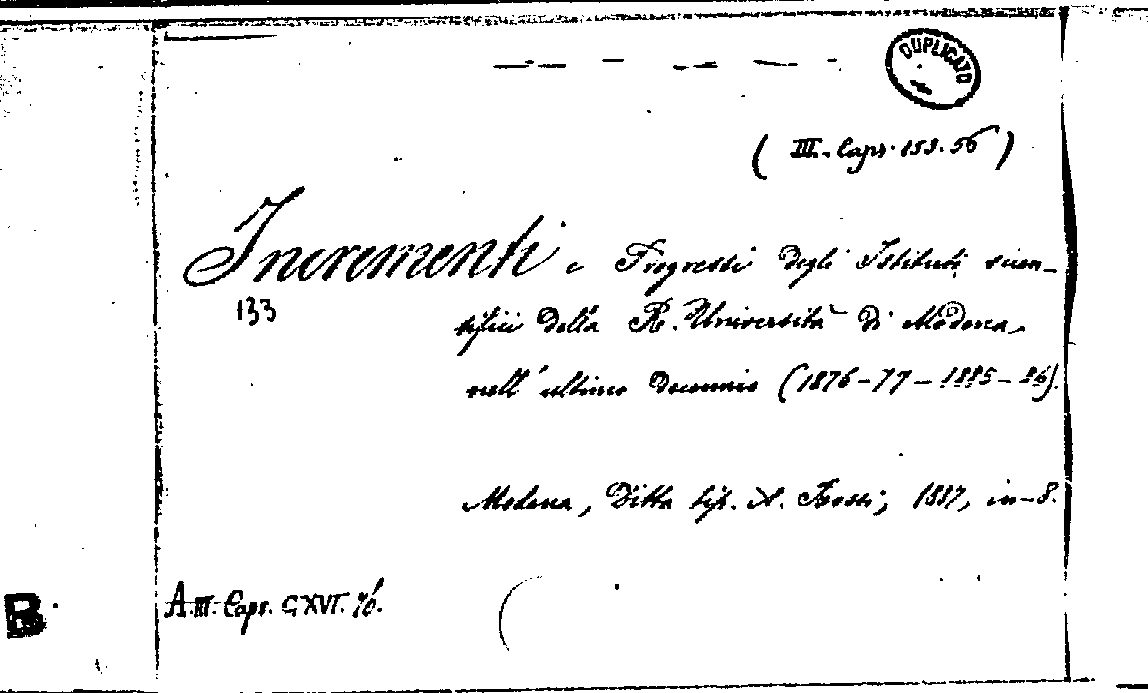 DUPLICATO
( III. Caps. 153. 56 )
Incrementi e Progressi degli Istituti scien-
133
tifici della R. Università di Modena
nell' ultimo decennio (1876-77 - 1885-86).
Modena, Ditta tip. A. Rossi, 1887, in-8.
A. III. Caps. CXVI. 76.
B